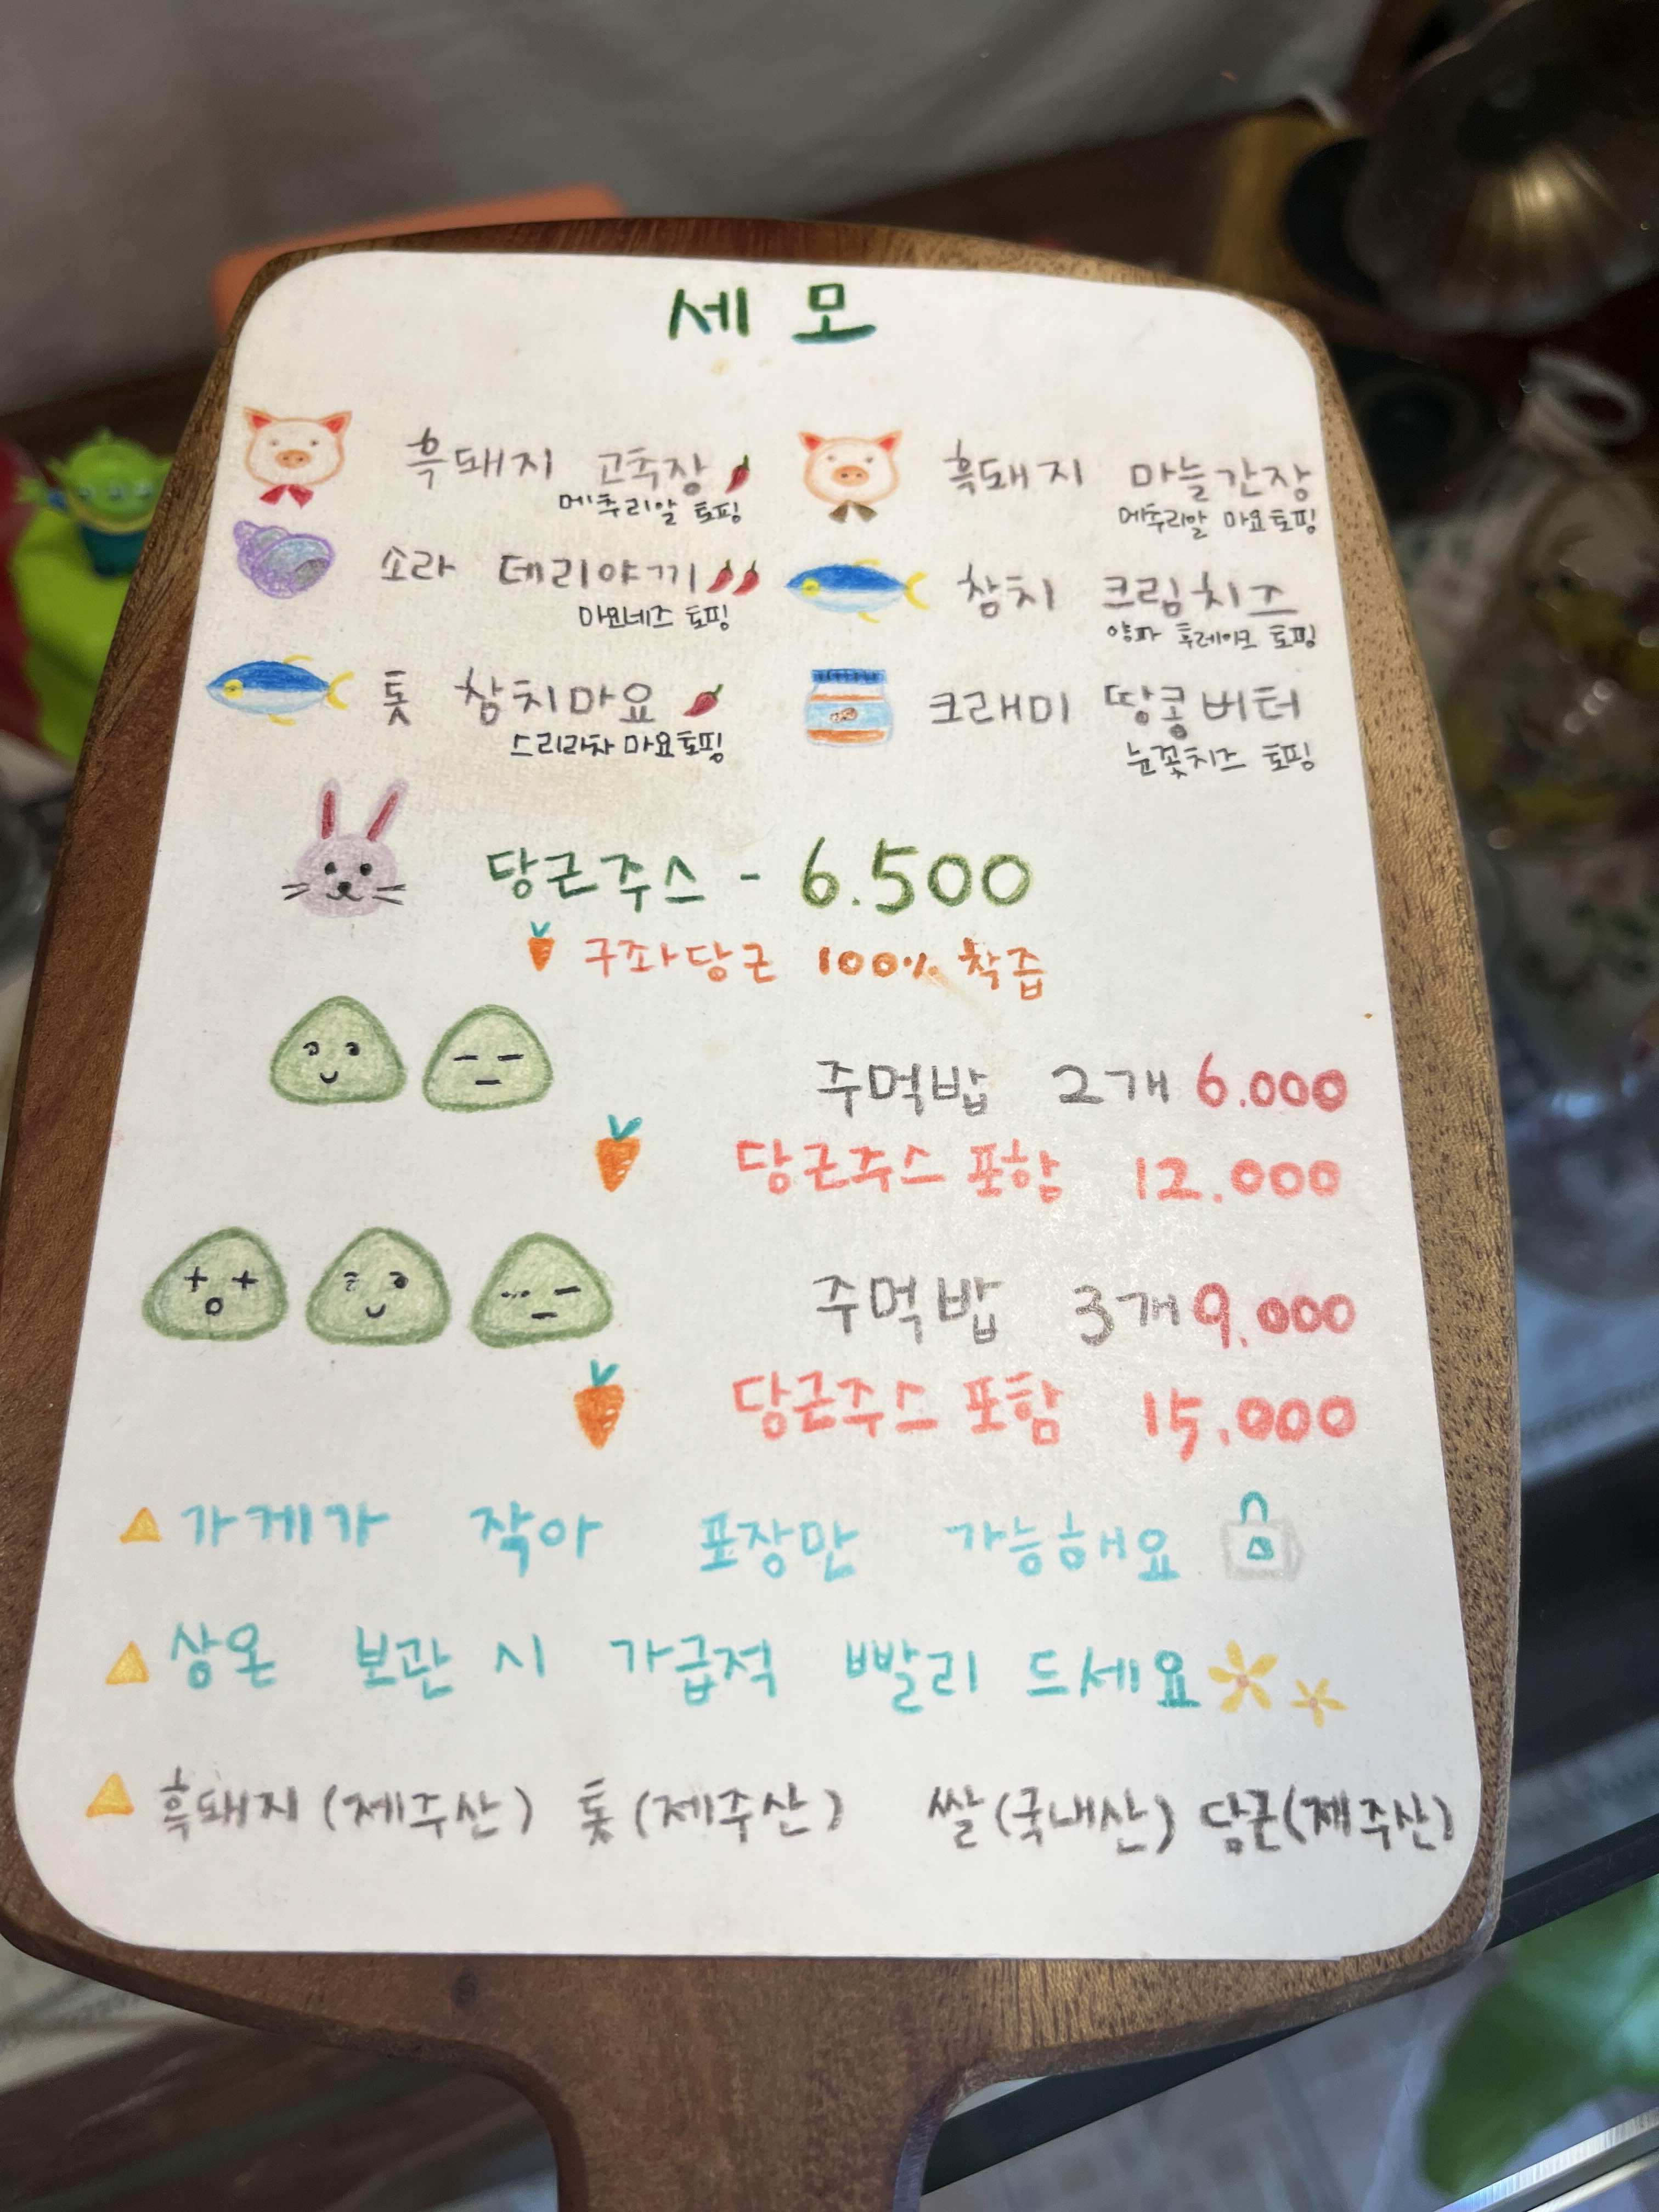 세모
흑돼지 고추장
메추리알 토핑
흑돼지 마늘간장
메추리알 마요토핑
소라 데리야끼
마요네즈 토핑
참치 크림치즈
양파 후레이크 토핑
톳 참치마요
스리라차 마요토핑
크래미 땅콩버터
눈꽃치즈 토핑
당근주스 - 6.500
구좌당근 100% 착즙
주먹밥 2개 6.000
당근주스 포함 12.000
주먹밥 3개 9.000
당근주스 포함 15.000
가게가 작아 포장만 가능해요
상온 보관 시 가급적 빨리 드세요
흑돼지 (제주산) 톳 (제주산) 쌀 (국내산) 당근(제주산)